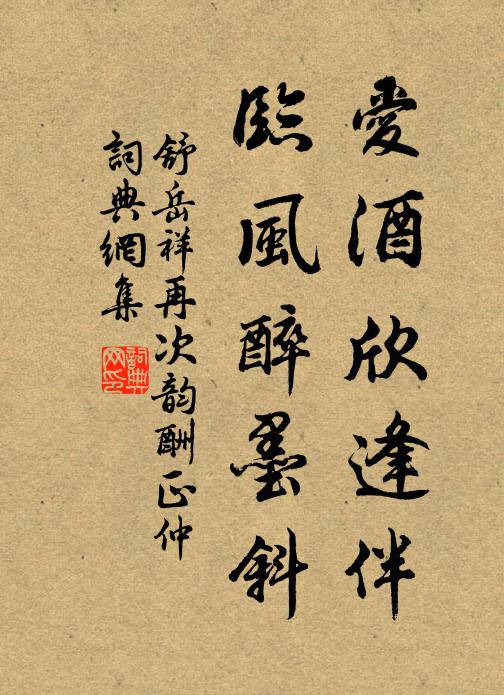 愛酒欣逢伴
臨風醉墨斜
舒岳祥再次韵酬正仲
詞典網集
詞典网印